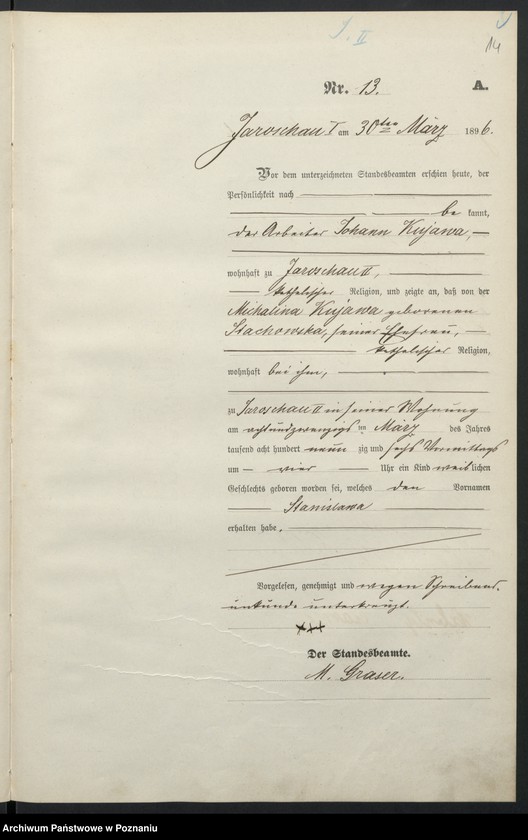 I. II
14
Nr. 13. A.
Jaroschau I am 30ten März 1896.
Vor dem unterzeichneten Standesbeamten erschien heute, der
Persönlichkeit nach
be kannt,
der Arbeiter Johann Kujawa,
wohnhaft zu Jaroschau II,
katholischer Religion, und zeigte an, daß von der
Michalina Kujawa geborenen
Stachowska, seiner Ehefrau,
katholischer Religion,
wohnhaft bei ihm,
zu Jaroschau II in seiner Wohnung
am achtundzwanzigs ten März des Jahres
tausend acht hundert neun zig und sechs Vormittags
um vier Uhr ein Kind weib lichen
Geschlechts geboren worden sei, welches den Vornamen
Stanislawa
erhalten habe.
Vorgelesen, genehmigt und wegen Schreibens-
unkunde unterkreuzt.
+++
Der Standesbeamte.
M. Graser.
Archiwum Państwowe w Poznaniu